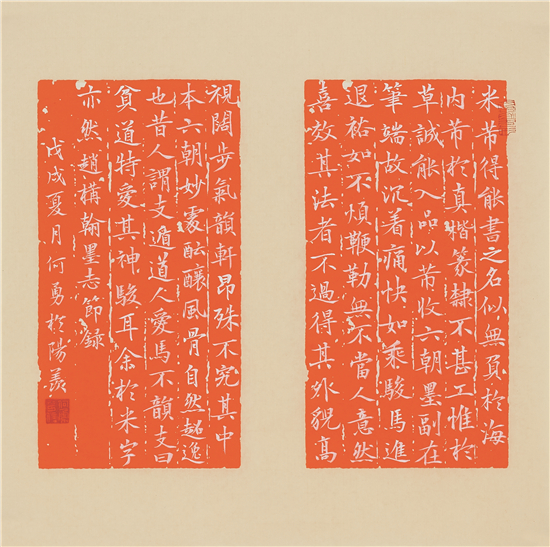 米芾得能書之名似無負於海
内芾於真楷篆隸不甚工惟於
草誠能入品以芾收六朝墨副在
筆端故沉着痛快如乘駿馬進
退裕如不煩鞭勒無不當人意然
喜效其法者不過得其外貌高
視闊步氣韻軒昂殊不究其中
本六朝妙處醖釀風骨自然超逸
也昔人謂支遁道人愛馬不韻支曰
貧道特愛其神駿耳余於米字
亦然趙構翰墨志節録
戊戌夏月何勇於陽羨